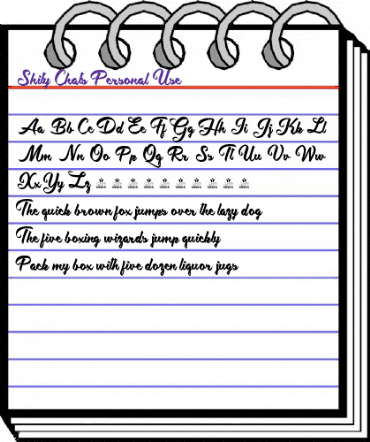 Shity Chats Personal Use
Aa Bb Cc Dd Ee Ff Gg Hh Ii Jj Kk Ll
Mm Nn Oo Pp Qq Rr Ss Tt Uu Vv Ww
Xx Yy Zz
The quick brown fox jumps over the lazy dog
The five boxing wizards jump quickly
Pack my box with five dozen liquor jugs